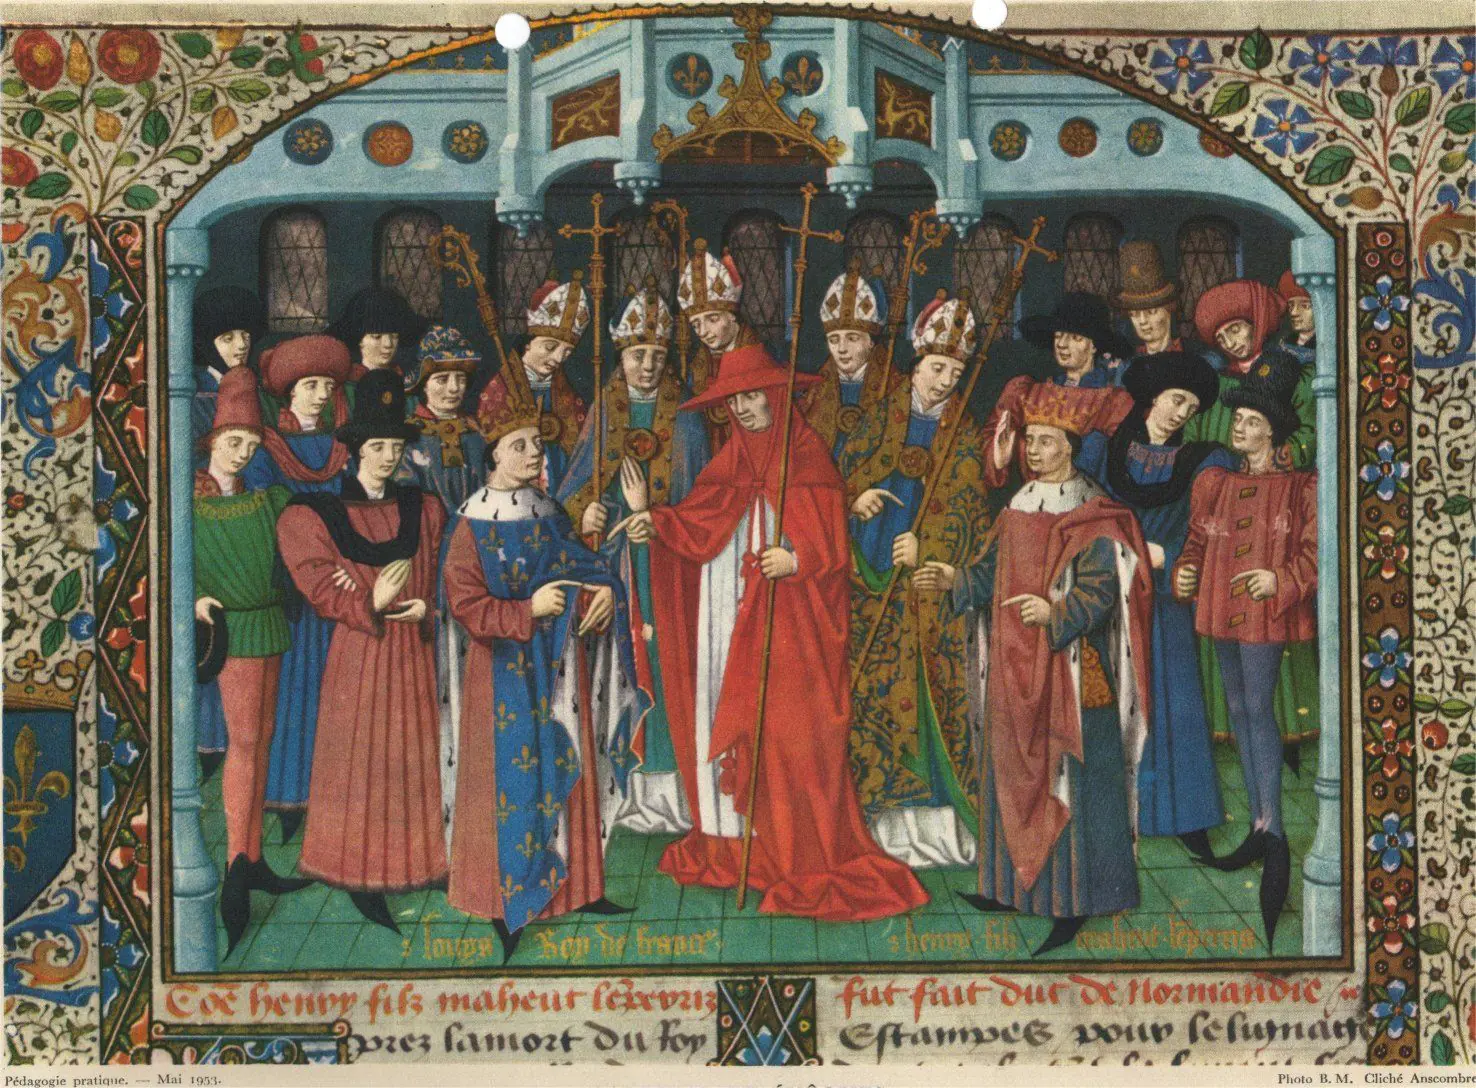 s louys Roy de france
s henry filz maheut lēperris
Cōe henry filz maheut lēperriz fut fait duc de Normandie
prez la mort du Roy
Estampes pour le lignage
Pédagogie pratique. — Mai 1953.
Photo B. M. Cliché Anscombre